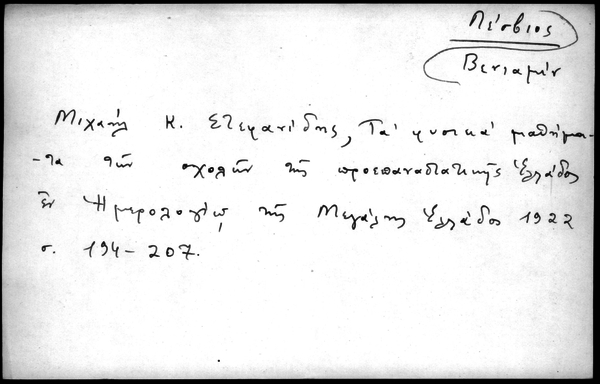 Λέσβιος
Βενιαμίν
Μιχαήλ Κ. Στεφανίδης, Τα' φυσικα' μαθήμα-
-τα τῶν σχολῶν τῆς προεπαναστατικῆς Ἑλλάδος
ἐν Ἡμερολογίῳ τῆς Μεγάλης Ἑλλάδος 1922
σ. 194-207.